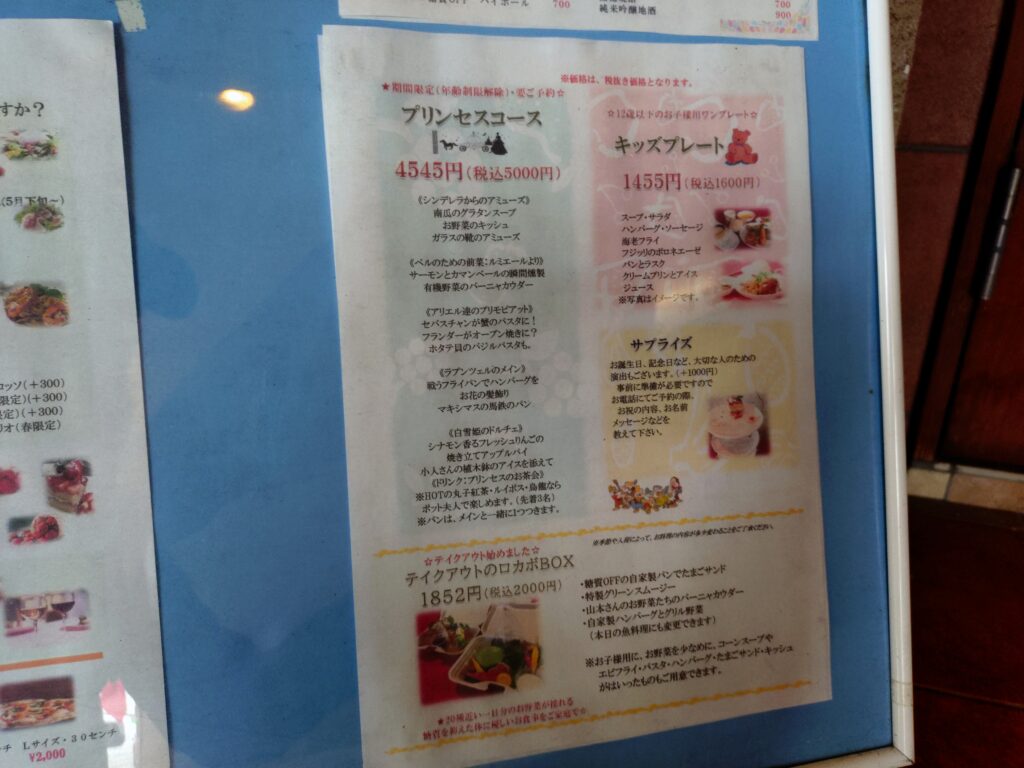 700
純米吟醸地酒
700
900
すか？
(5月下旬～)
ロッソ(＋300)
限定)(＋300)
定)(＋300)
リオ(春限定)
Lサイズ・30センチ
¥2,000
※価格は、税抜き価格となります。
★期間限定(年齢制限解除)・要ご予約☆
プリンセスコース
4545円(税込5000円)
《シンデレラからのアミューズ》
南瓜のグラタンスープ
お野菜のキッシュ
ガラスの靴のアミューズ
《ベルのための前菜：ルミエールより》
サーモンとカマンベールの瞬間燻製
有機野菜のバーニャカウダー
《アリエル達のプリモピアット》
セバスチャンが蟹のパスタに！
フランダーがオーブン焼きに？
ホタテ貝のバジルパスタも。
《ラプンツェルのメイン》
戦うフライパンでハンバーグを
お花の髪飾り
マキシマスの馬鉄のパン
《白雪姫のドルチェ》
シナモン香るフレッシュりんごの
焼き立てアップルパイ
小人さんの植木鉢のアイスを添えて
《ドリンク：プリンセスのお茶会》
※HOTの丸子紅茶・ルイボス・烏龍なら
ポット夫人で楽しめます。(先着3名)
※パンは、メインと一緒に1つつきます。
☆12歳以下のお子様用ワンプレート☆
キッズプレート
1455円(税込1600円)
スープ・サラダ
ハンバーグ・ソーセージ
海老フライ
フジッリのボロネエーゼ
パンとラスク
クリームプリンとアイス
ジュース
※写真はイメージです。
サプライズ
お誕生日、記念日など、大切な人のための
演出もございます。(＋1000円)
事前に準備が必要ですので
お電話にてご予約の際、
お祝の内容、お名前
メッセージなどを
教えて下さい。
※季節や入荷によって、お料理の内容が多少変わることをご了承ください。
☆テイクアウト始めました☆
テイクアウトのロカボBOX
1852円(税込2000円)
・糖質OFFの自家製パンでたまごサンド
・特製グリーンスムージー
・山本さんのお野菜たちのバーニャカウダー
・自家製ハンバーグとグリル野菜
(本日の魚料理にも変更できます)
※お子様用に、お野菜を少なめに、コーンスープや
エビフライ・パスタ・ハンバーグ・たまごサンド・キッシュ
がはいったものもご用意できます。
★20種近い一日分のお野菜が採れる
糖質を抑えた体に優しいお食事をご家庭で☆